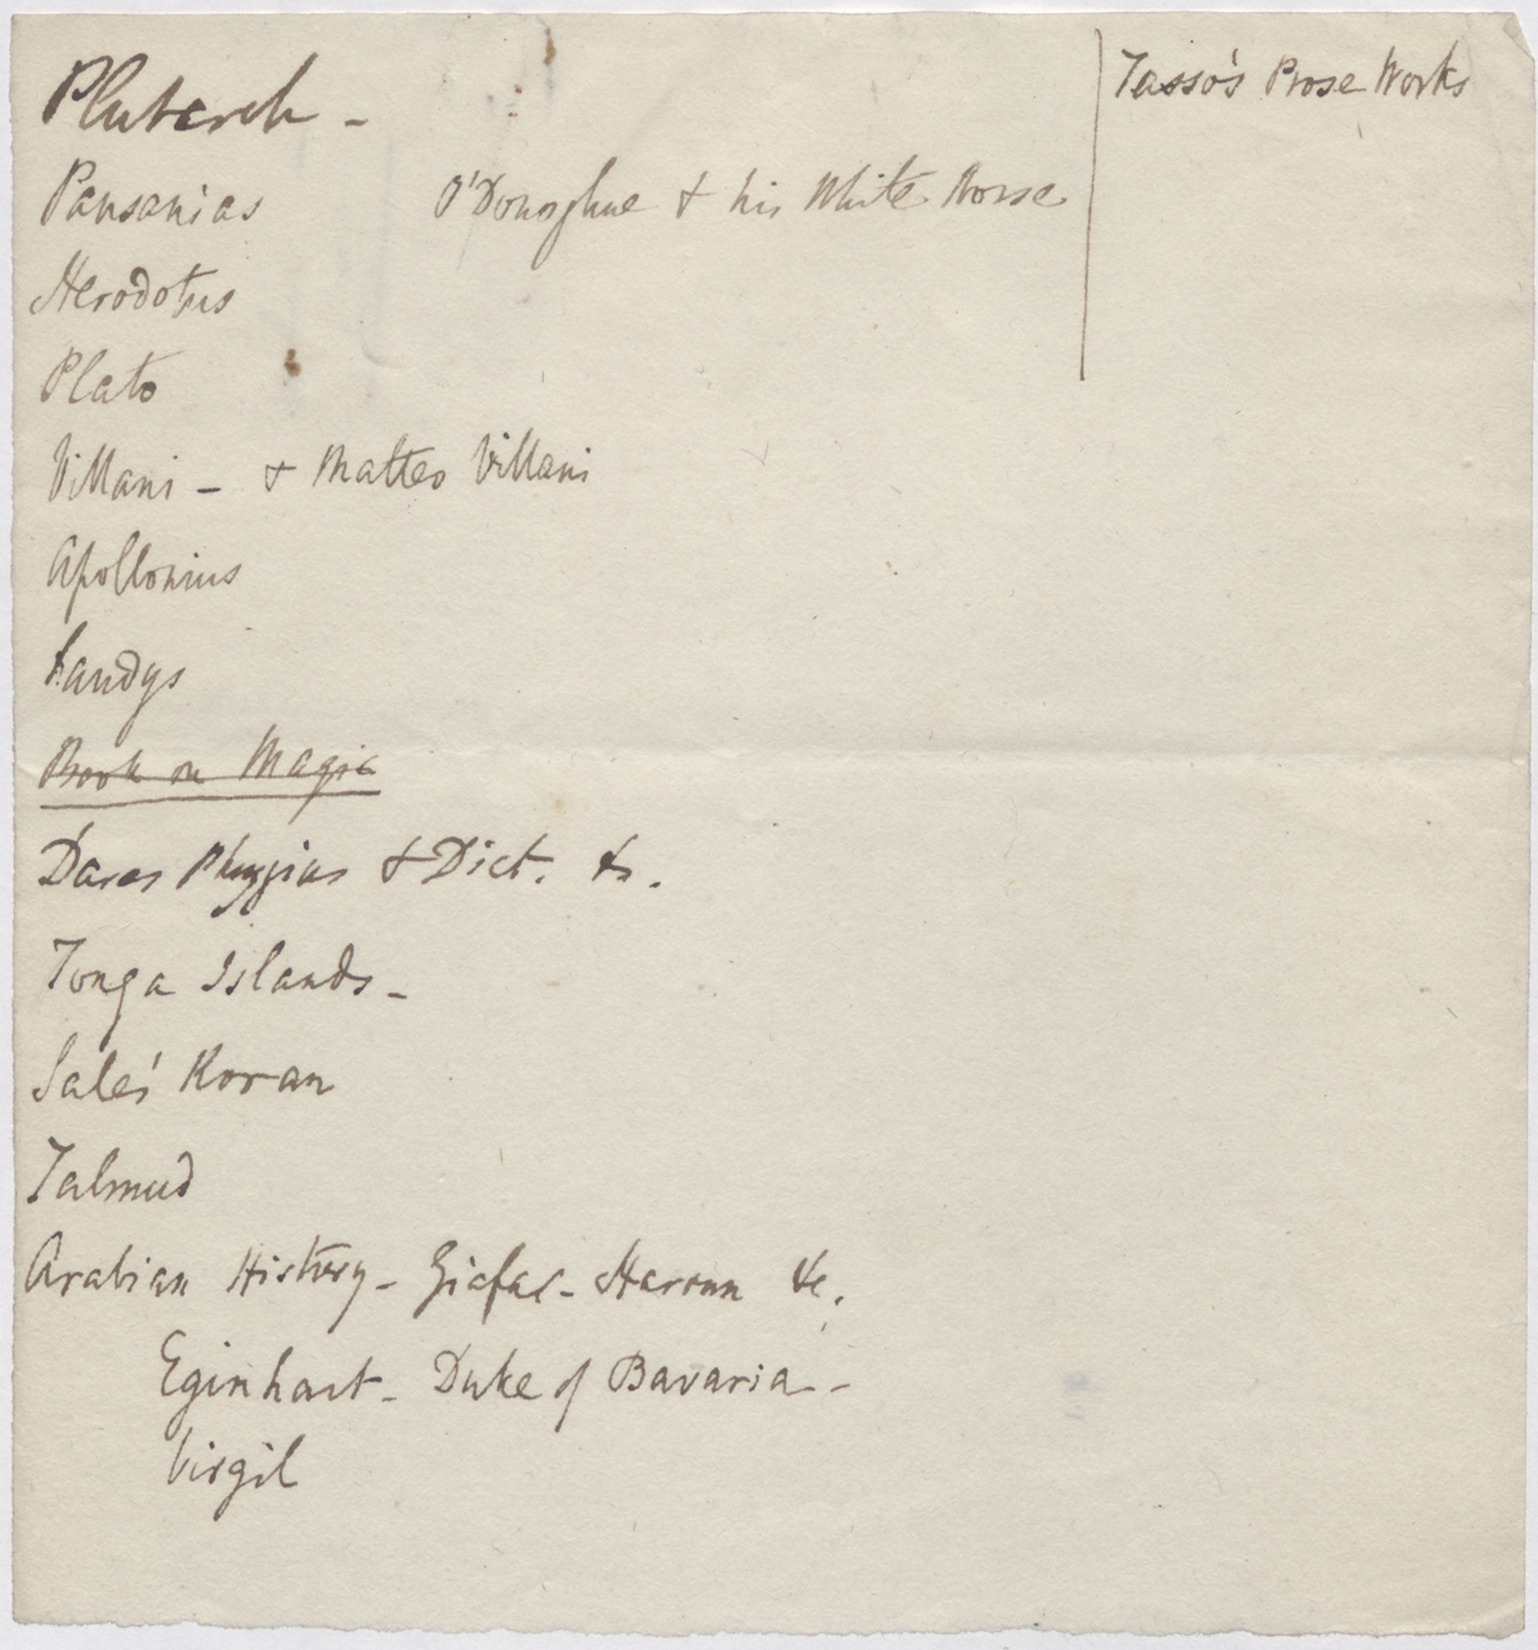 Plutarch -
Tasso's Prose Works
Pausanias
O'Donoghue & his White Horse
Herodotus
Plato
Villani - & Matteo Villani
Apollonius
Sandys
Book on Magic
Dares Phrygius & Dict. &c.
Tonga Islands -
Sale's Koran
Talmud
Arabian History - Giafar - Haroun &c.
Eginhart - Duke of Bavaria -
Virgil